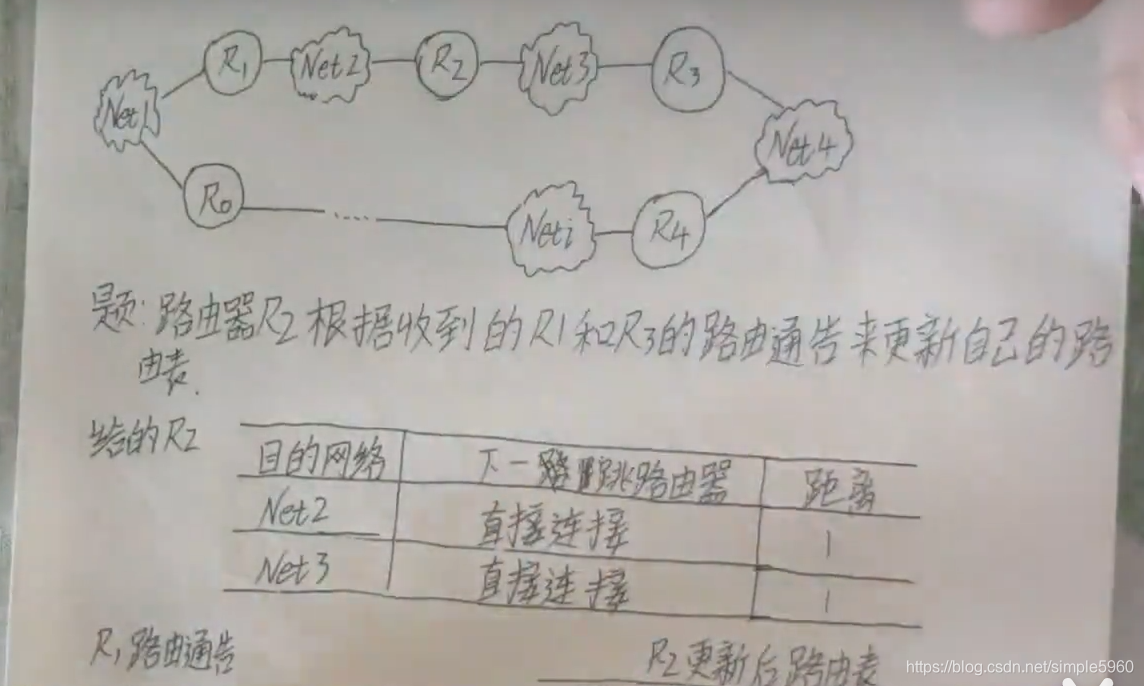 R1 Net2 R2 Net3 R3
Net1
Net4
R0 .... Neti R4
题:路由器R2根据收到的R1和R3的路由通告来更新自己的路
由表.
给的R2
目的网络 下一跳路由器 距离
Net2 直接连接 1
Net3 直接连接 1
R1路由通告 R2更新后路由表
https://blog.csdn.net/simple5960